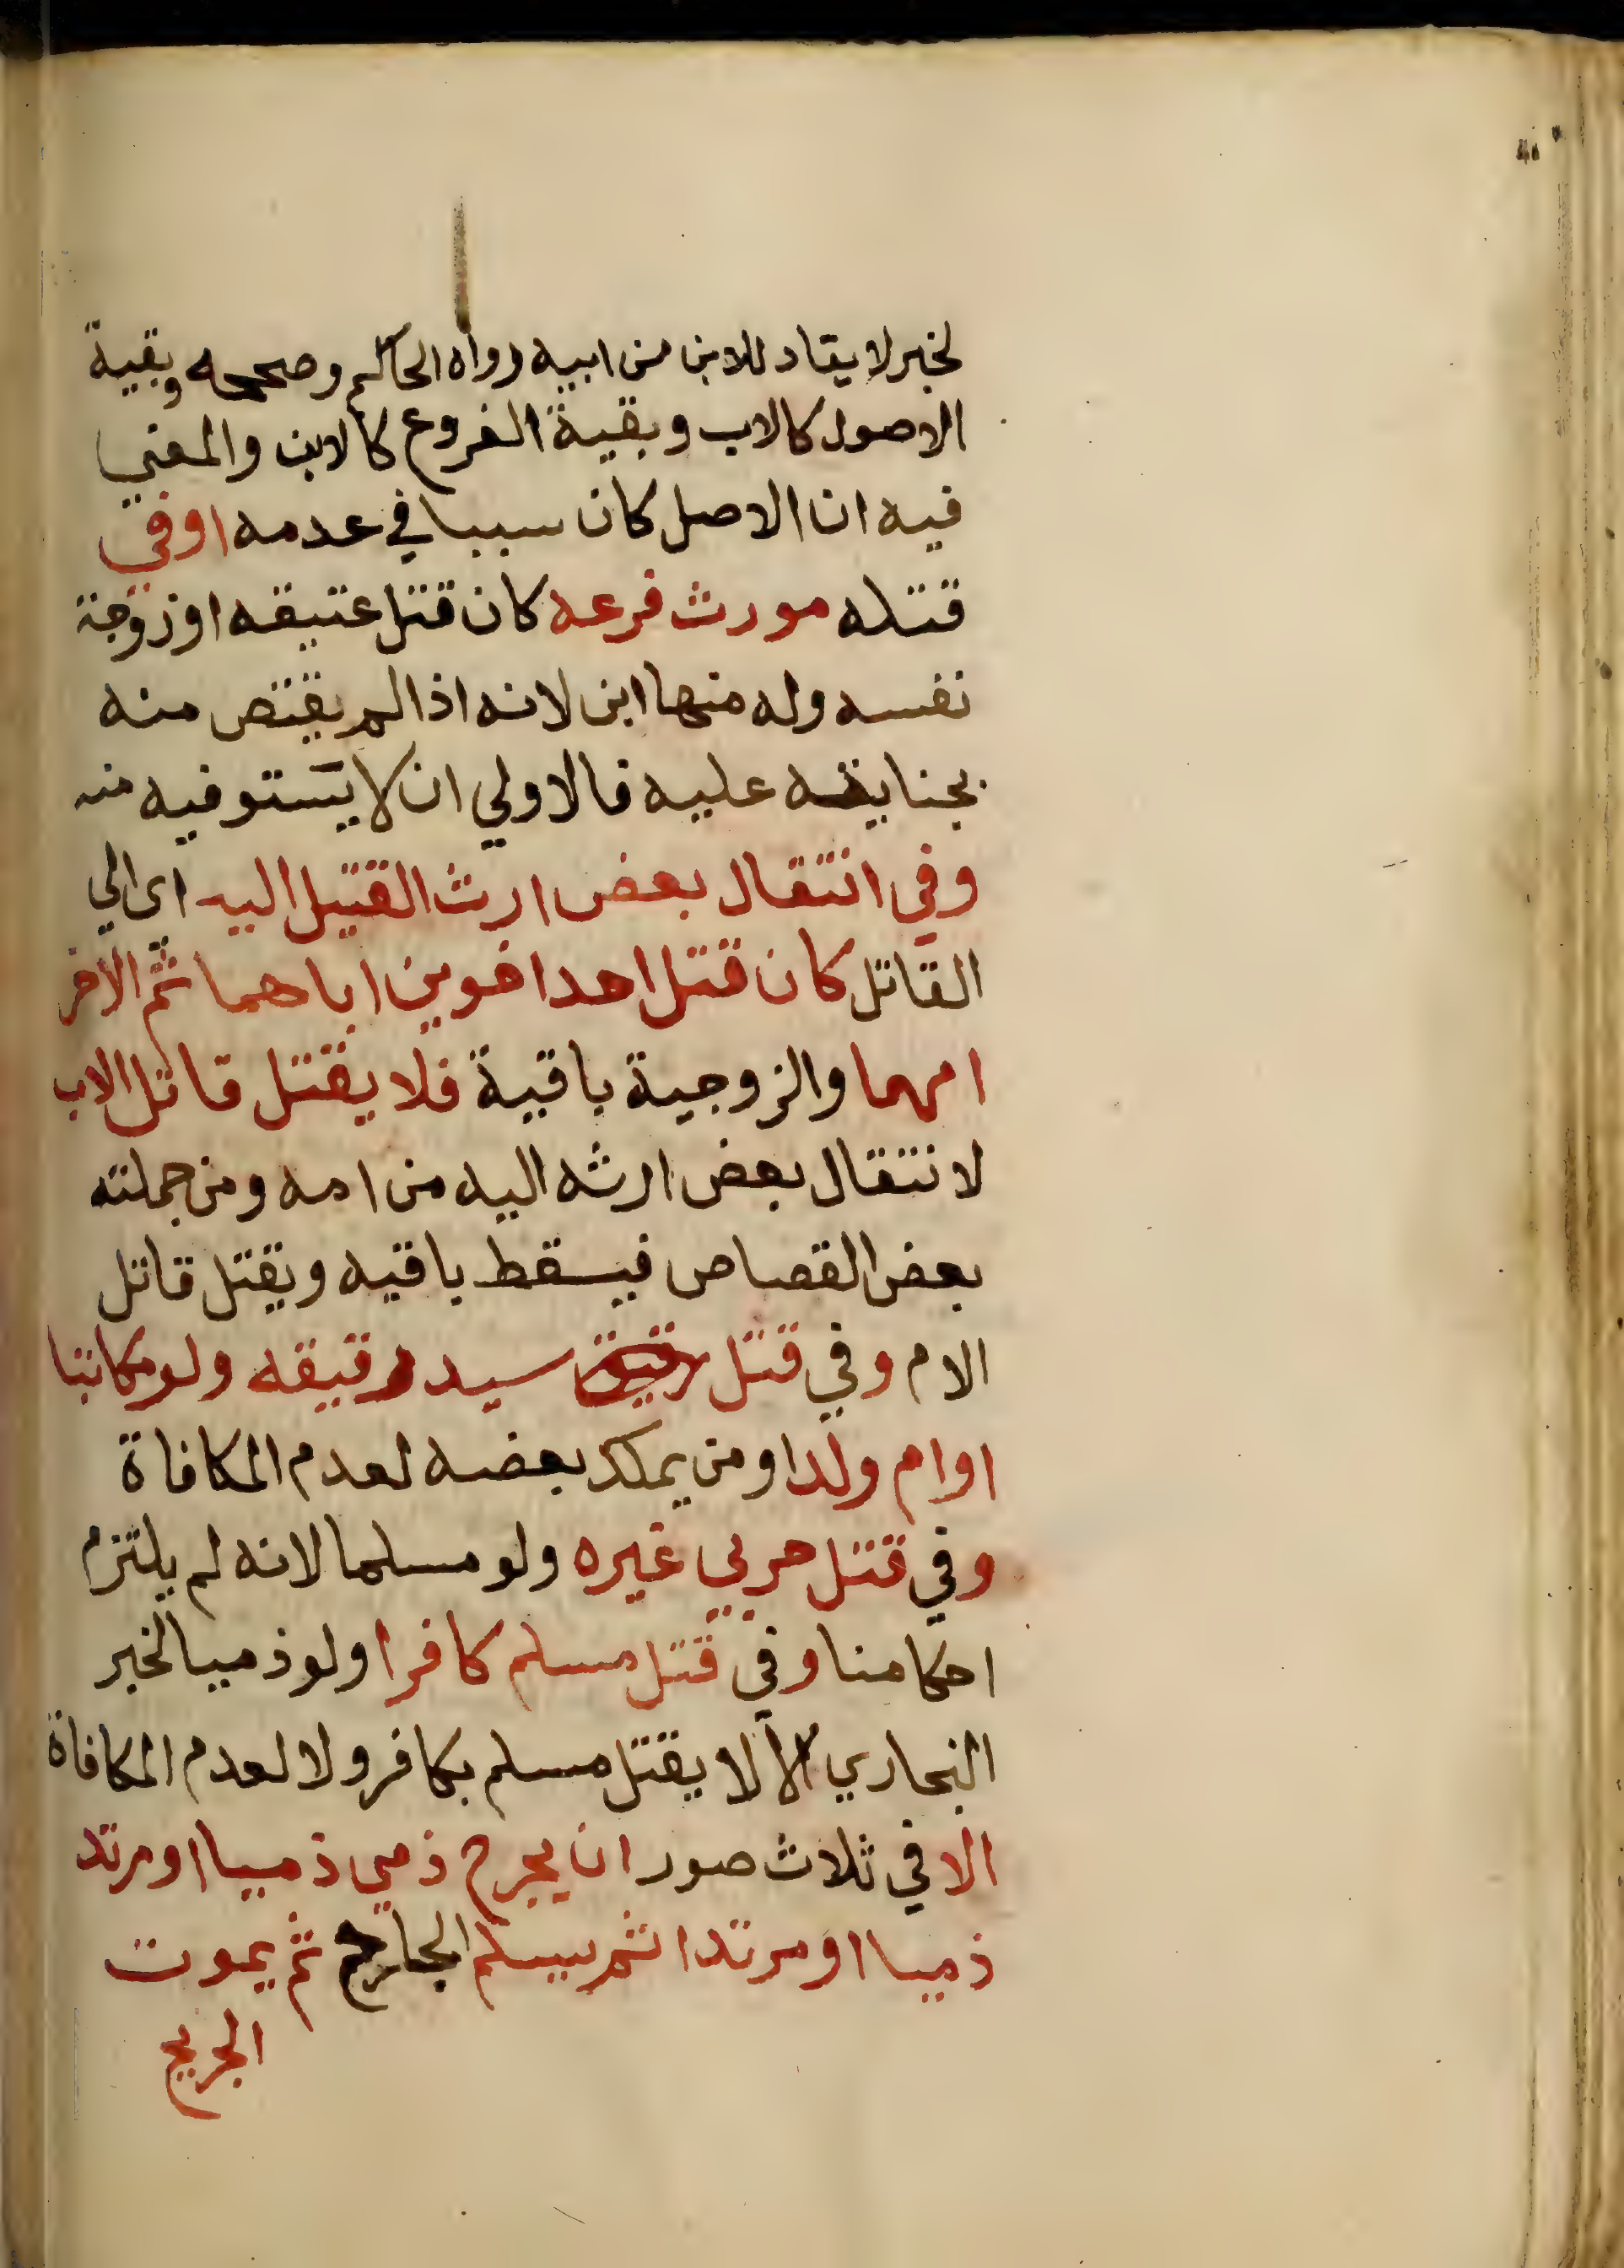 لخبر لا يقاد للابن من ابيه رواه الحاكم وصححه وبقية
الاصول كالاب وبقية الفروع كالابن والمعني
فيه ان الاصل كان سببا في عدمه او في
قتله مورث فرعه كان قتل عتيقه او زوجة
نفسه وله منها ابن لانه اذا لم يقتص منه
بجنايته عليه فالاولي ان لا يستوفيه منه
وفي انتقال بعض ارث القتيل اليه اي الي
القاتل كان قتل احد اخوين اباهما ثم الاخر
امهما والزوجية باقية فلا يقتل قاتل الاب
لانتقال بعض ارثه اليه من امه ومن جملته
بعض القصاص فيسقط باقيه ويقتل قاتل
الام وفي قتل سيد رقيقه ولو مكاتبا
او ام ولد او من يملك بعضه لعدم المكافاة
وفي قتل حربي غيره ولو مسلما لانه لم يلتزم
احكامنا وفي قتل مسلم كافرا ولو ذميا لخبر
البخاري الا لا يقتل مسلم بكافر ولا لعدم المكافاة
الا في ثلاث صور ان يجرح ذمي ذميا او مرتد
ذميا او مرتدا ثم يسلم الجارح ثم يموت
الجريح